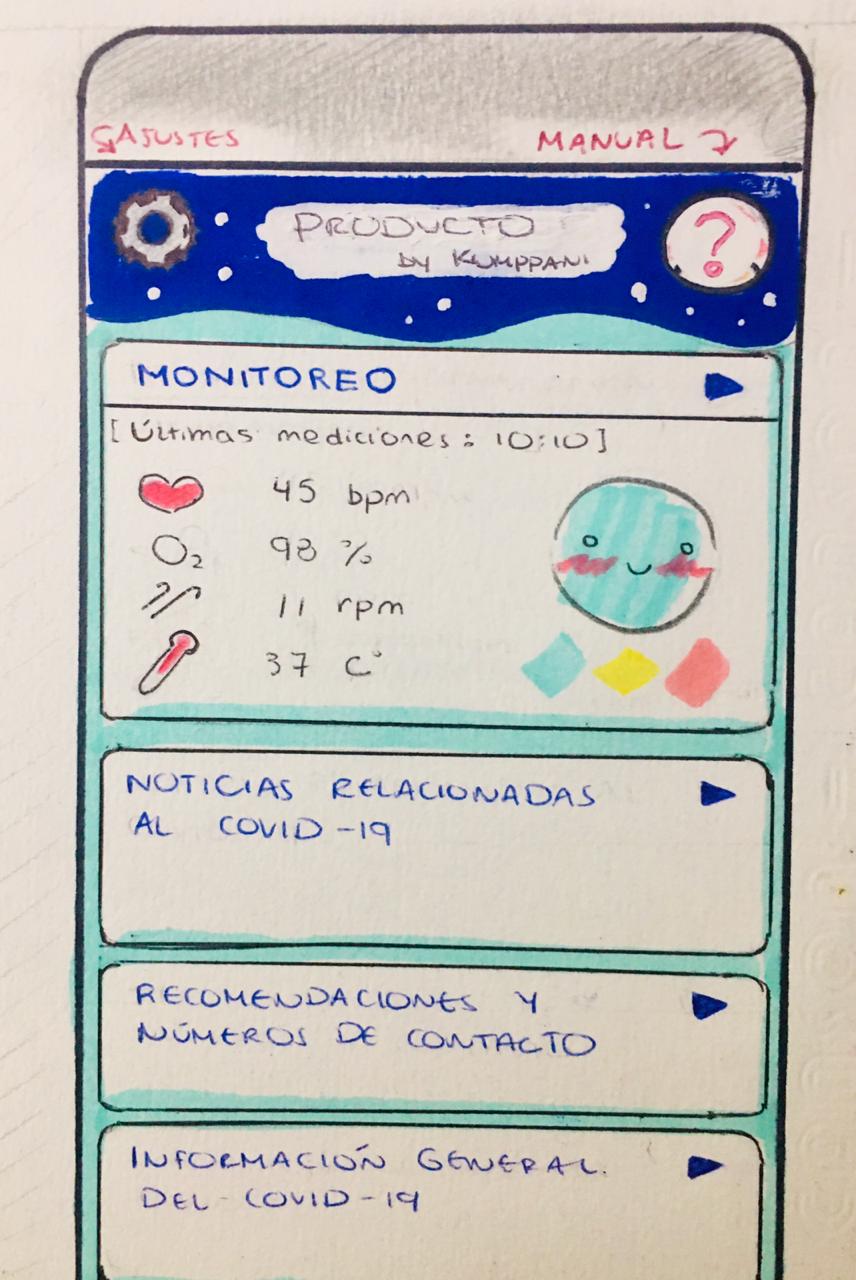 AJUSTES
MANUAL
?
PRODUCTO
by KUMPPANI
MONITOREO
[Últimas mediciones: 10:10]
45 bpm
O₂ 98 %
11 rpm
37 C°
NOTICIAS RELACIONADAS
AL COVID-19
RECOMENDACIONES Y
NÚMEROS DE CONTACTO
INFORMACIÓN GENERAL.
DEL COVID-19